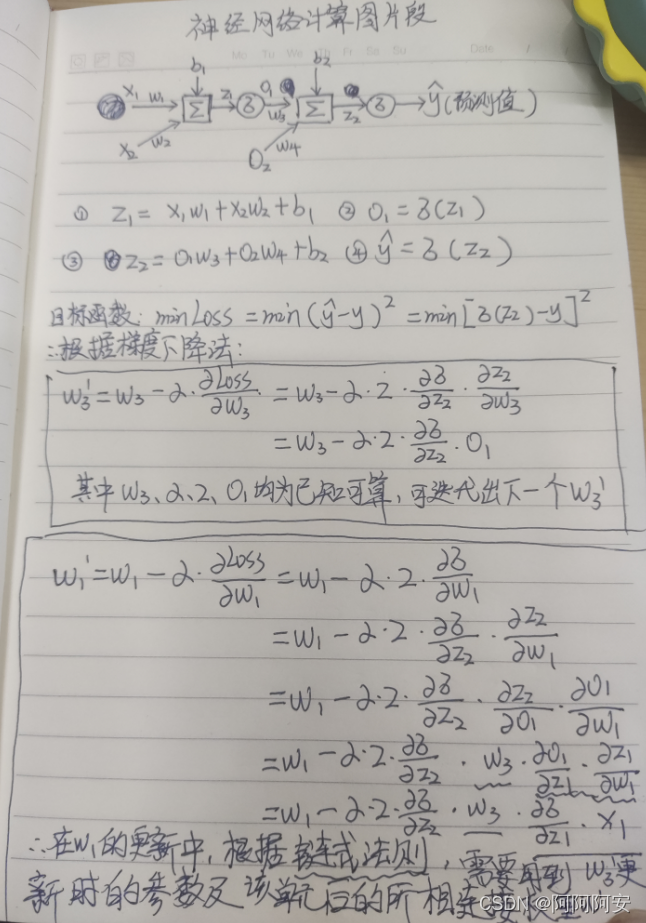 神经网络计算图片段
Mo Tu We Th Fr Sa Su Date
b₁ b₂
x₁ w₁ Σ z₁ δ o₁ w₃ Σ z₂ δ ŷ(预测值)
x₂ w₂ O₂ w₄
① z₁ = x₁w₁+x₂w₂+b₁ ② o₁=δ(z₁)
③ z₂=o₁w₃+o₂w₄+b₂ ④ ŷ=δ(z₂)
目标函数: min Loss = min(ŷ-y)² = min[δ(z₂)-y]²
∴根据梯度下降法:
w₃' = w₃ - α·∂Loss/∂w₃ = w₃ - α·2·∂δ/∂z₂·∂z₂/∂w₃
= w₃ - α·2·∂δ/∂z₂·O₁
其中w₃、α、2、O₁均为已知可算,可迭代出下一个w₃'
w₁' = w₁ - α·∂Loss/∂w₁ = w₁ - α·2·∂δ/∂w₁
= w₁ - α·2·∂δ/∂z₂·∂z₂/∂w₁
= w₁ - α·2·∂δ/∂z₂·∂z₂/∂O₁·∂O₁/∂w₁
= w₁ - α·2·∂δ/∂z₂·w₃·∂O₁/∂z₁·∂z₁/∂w₁
= w₁ - α·2·∂δ/∂z₂·w₃·∂δ/∂z₁·x₁
∴在w₁的更新中,根据链式法则,需要用到w₃'更
新时的参数及该单元后的所相连
CSDN @阿阿阿安